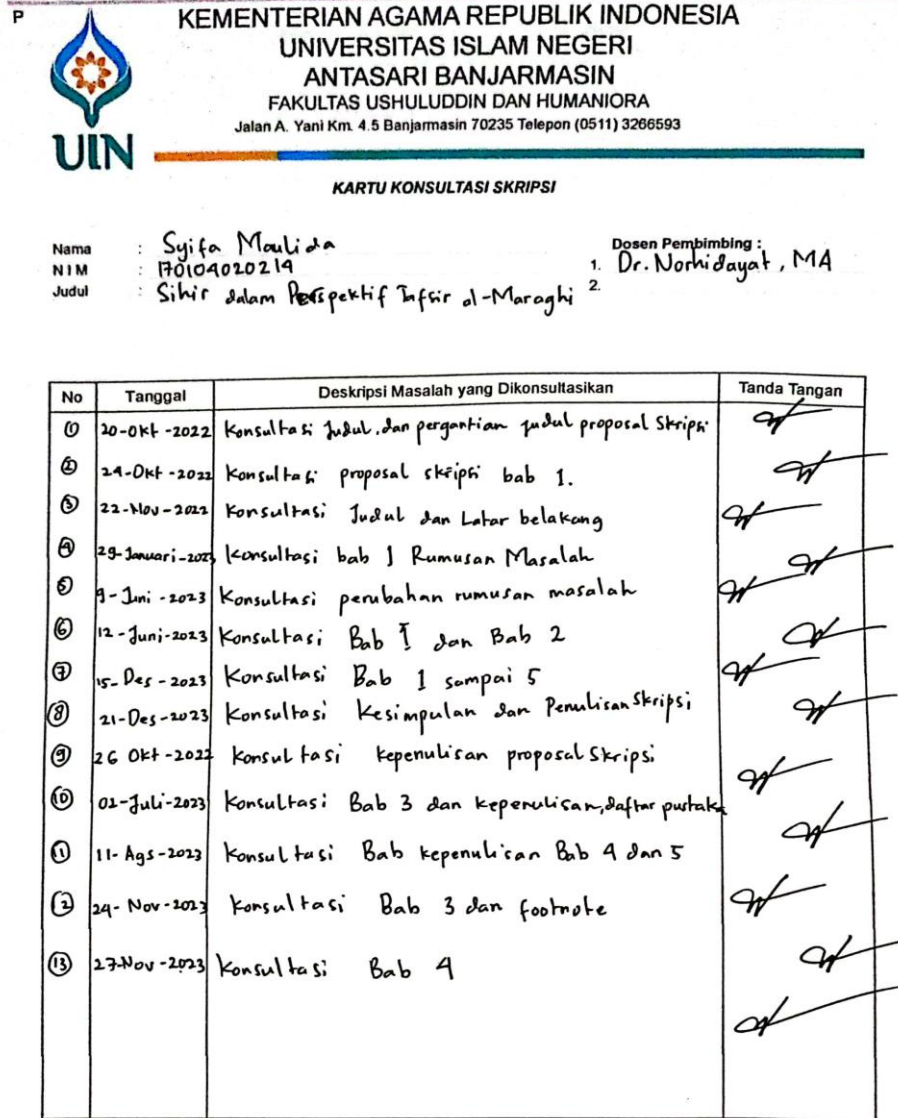 P
KEMENTERIAN AGAMA REPUBLIK INDONESIA
UNIVERSITAS ISLAM NEGERI
ANTASARI BANJARMASIN
FAKULTAS USHULUDDIN DAN HUMANIORA
Jalan A. Yani Km. 4.5 Banjarmasin 70235 Telepon (0511) 3266593
UIN
KARTU KONSULTASI SKRIPSI
Nama : Syifa Maulida Dosen Pembimbing :
NIM : 170104020214 1. Dr. Norhidayat, MA
Judul : Sihir dalam Perspektif Tafsir al-Maraghi 2.
No Tanggal Deskripsi Masalah yang Dikonsultasikan Tanda Tangan
1 20-Okt-2022 Konsultasi Judul, dan pergantian judul proposal Skripsi
2 24-Okt-2022 Konsultasi proposal skripsi bab 1.
3 22-Nov-2022 Konsultasi Judul dan Latar belakang
4 29-Januari-2023 Konsultasi bab 1 Rumusan Masalah
5 9-Juni-2023 Konsultasi perubahan rumusan masalah
6 12-Juni-2023 Konsultasi Bab 1 dan Bab 2
7 15-Des-2023 Konsultasi Bab 1 sampai 5
8 21-Des-2023 Konsultasi Kesimpulan dan Penulisan Skripsi
9 26 Okt-2022 Konsultasi kepenulisan proposal Skripsi
10 02-Juli-2023 Konsultasi Bab 3 dan kepenulisan, daftar pustaka
11 11-Ags-2023 Konsultasi Bab kepenulisan Bab 4 dan 5
12 24-Nov-2023 Konsultasi Bab 3 dan footnote
13 27-Nov-2023 Konsultasi Bab 4